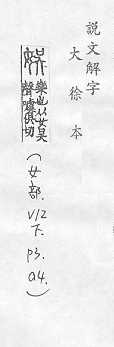 說文解字
大徐本
娛
樂也从女吳
聲噳俱切
(女部.V12下.p3.a4.)